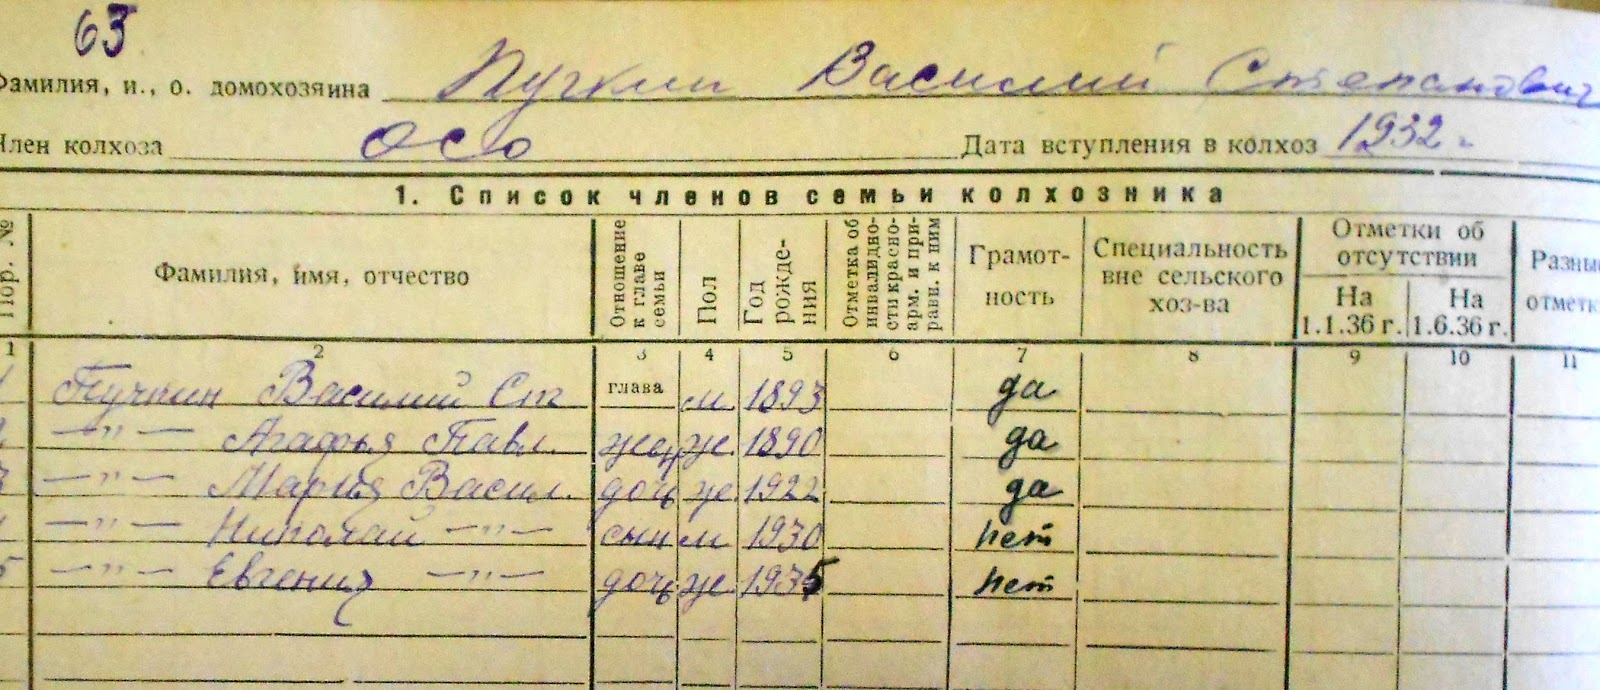 63
Фамилия, и., о. домохозяина Пучкин Василий Степанович
Член колхоза ОСО Дата вступления в колхоз 1932 г.
1. Список членов семьи колхозника
Пор. № Фамилия, имя, отчество Отношение к главе семьи Пол Год рожде- ния Отметка об инвалидно- сти красно- арм. и при- равн. к ним Грамот- ность Специальность вне сельского хоз-ва Отметки об отсутствии На 1.1.36 г. На 1.6.36 г. Разные отметк
1 2 3 4 5 6 7 8 9 10 11
1 Пучкин Василий Ст глава м. 1893 да
2 —"— Агафья Павл. жен ж. 1890 да
3 —"— Мария Васил. дочь ж. 1922 да
4 —"— Николай —"— сын м 1930 нет
5 —"— Евгения —"— дочь ж. 1935 нет